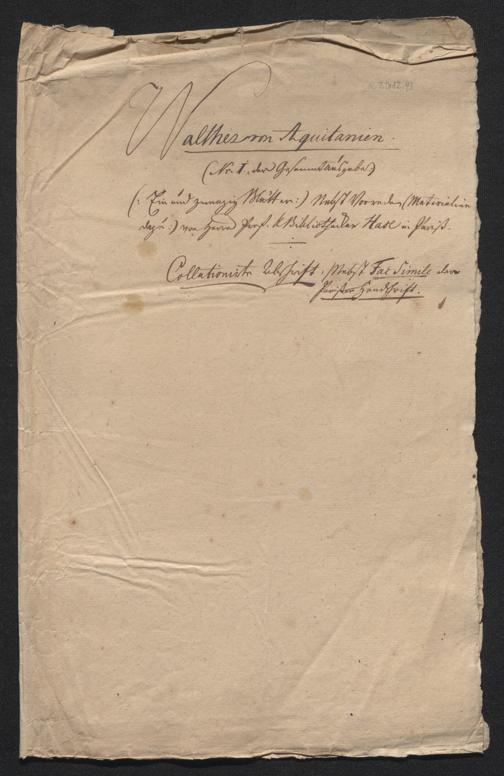 Walther von Aquitanien.
(Nr. I. der Gesammtausgabe)
(: Ein und zwanzig Blätter :) Nebst Vorreden (Materialien
dazu :) von Herrn Prof. & Bibliothecker Hase in Paris.
Collationirte Abschrift, Nebst Fac Simile der
Pariser Handschrift.